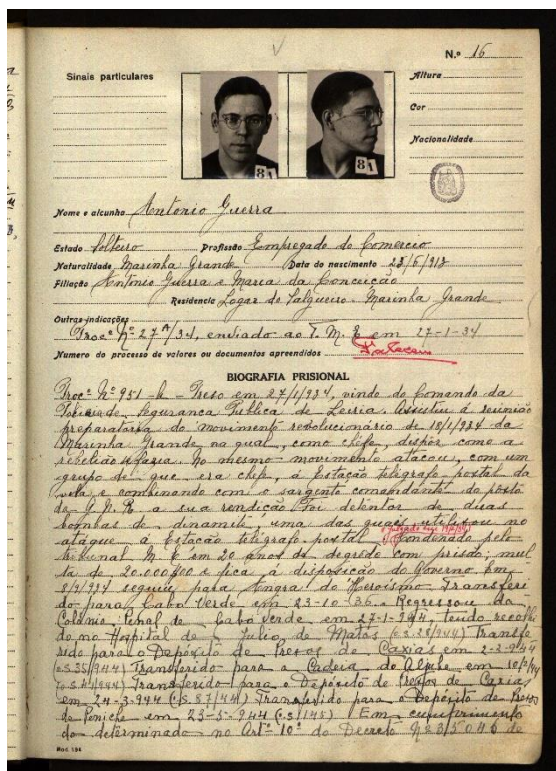 N.º 16
Sinais particulares
Altura
Cor
Nacionalidade
81
81
Nome e alcunha Antonio Guerra
Estado Solteiro Profissão Empregado do Comercio
Naturalidade Marinha Grande Data do nascimento 23/6/913
Filiação Antonio Guerra e Maria da Conceição
Residencia Logar de Salgueiro - Marinha Grande
Outras indicações
Procº Nº 27A/34, enviado ao T. M. E em 27-1-34
Numero do processo de valores ou documentos apreendidos
BIOGRAFIA PRISIONAL
Procº Nº 951 - Preso em 27/1/934, vindo do Comando da
Policia de Segurança Publica de Leiria. Assistiu á reunião
preparatoria do movimento revolucionário de 18/1/934 da
Marinha Grande na qual, como chefe, dispôs como a
rebelião se faria. No mesmo movimento atacou, com um
grupo de que era chefe, á Estação telégrafo postal da
vila e combinando com o sargento comandante do posto
da G. N. R. a sua rendição. Foi detentor de duas
bombas de dinamite, uma das quais utilisou no
ataque á Estação telégrafo postal. Condenado pelo
tribunal M. E em 20 anos de degrêdo com prisão; mul
ta de 20.000$00 e fica á disposição do Governo. Em
8/9/934 seguiu para Angra do Heroismo. Transferi
do para Cabo Verde em 23-10-36. Regressou da
Colónia Penal de Cabo Verde em 27-1-944, tendo recolhi
do no Hospital de Julio de Matos (o.s. 28/944) Transfe
rido para o Depósito de Presos de Caxias em 2-2-944
(o.s. 35/944) Transferido para a Cadeia do Aljube em 10/2/944
(o.s. 41/944) Transferido para o Depósito de Presos de Caxias
em 24-3-944 (o.s. 87/44) Transferido para o Depósito de Presos
de Peniche em 23-5-944 (o.s. /145) Em cumprimento
do determinado no Artº 10º do Decreto Nº 35046 de
Mod. 194